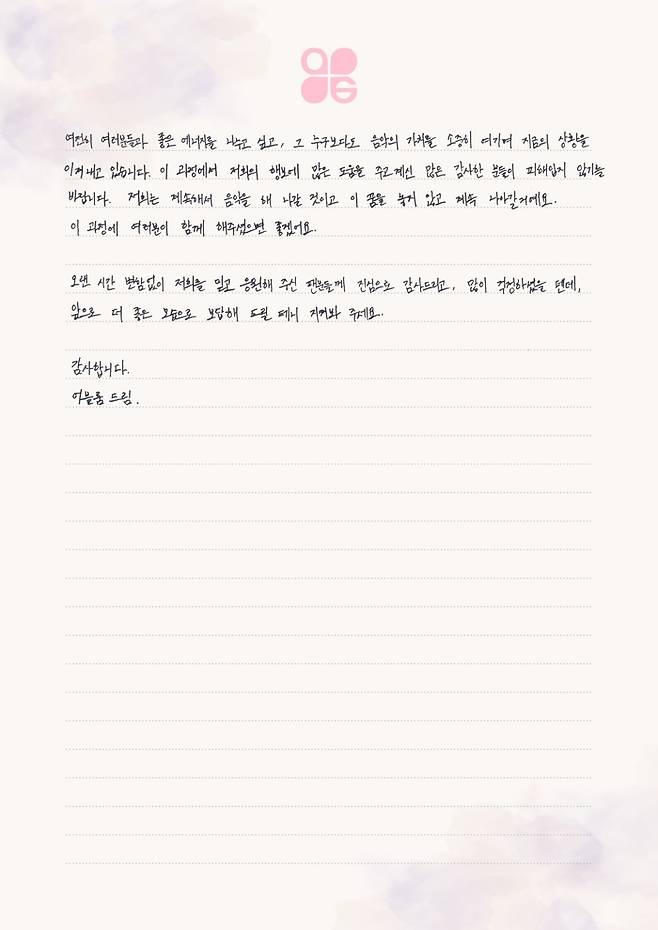 여전히 여러분들과 좋은 에너지를 나누고 싶고, 그 누구보다도 음악의 가치를 소중히 여기며 지금의 상황을
이겨내고 있습니다. 이 과정에서 저희의 행보에 많은 도움을 주고계신 많은 감사한 분들이 피해입지 않기를
바랍니다. 저희는 계속해서 음악을 해 나갈 것이고 이 꿈을 놓지 않고 계속 나아갈거에요.
이 과정에 여러분이 함께 해주셨으면 좋겠어요.
오랜 시간 변함없이 저희를 믿고 응원해 주신 팬분들께 진심으로 감사드리고, 많이 걱정하셨을 텐데,
앞으로 더 좋은 모습으로 보답해 드릴 테니 지켜봐 주세요.
감사합니다.
어블룸 드림.